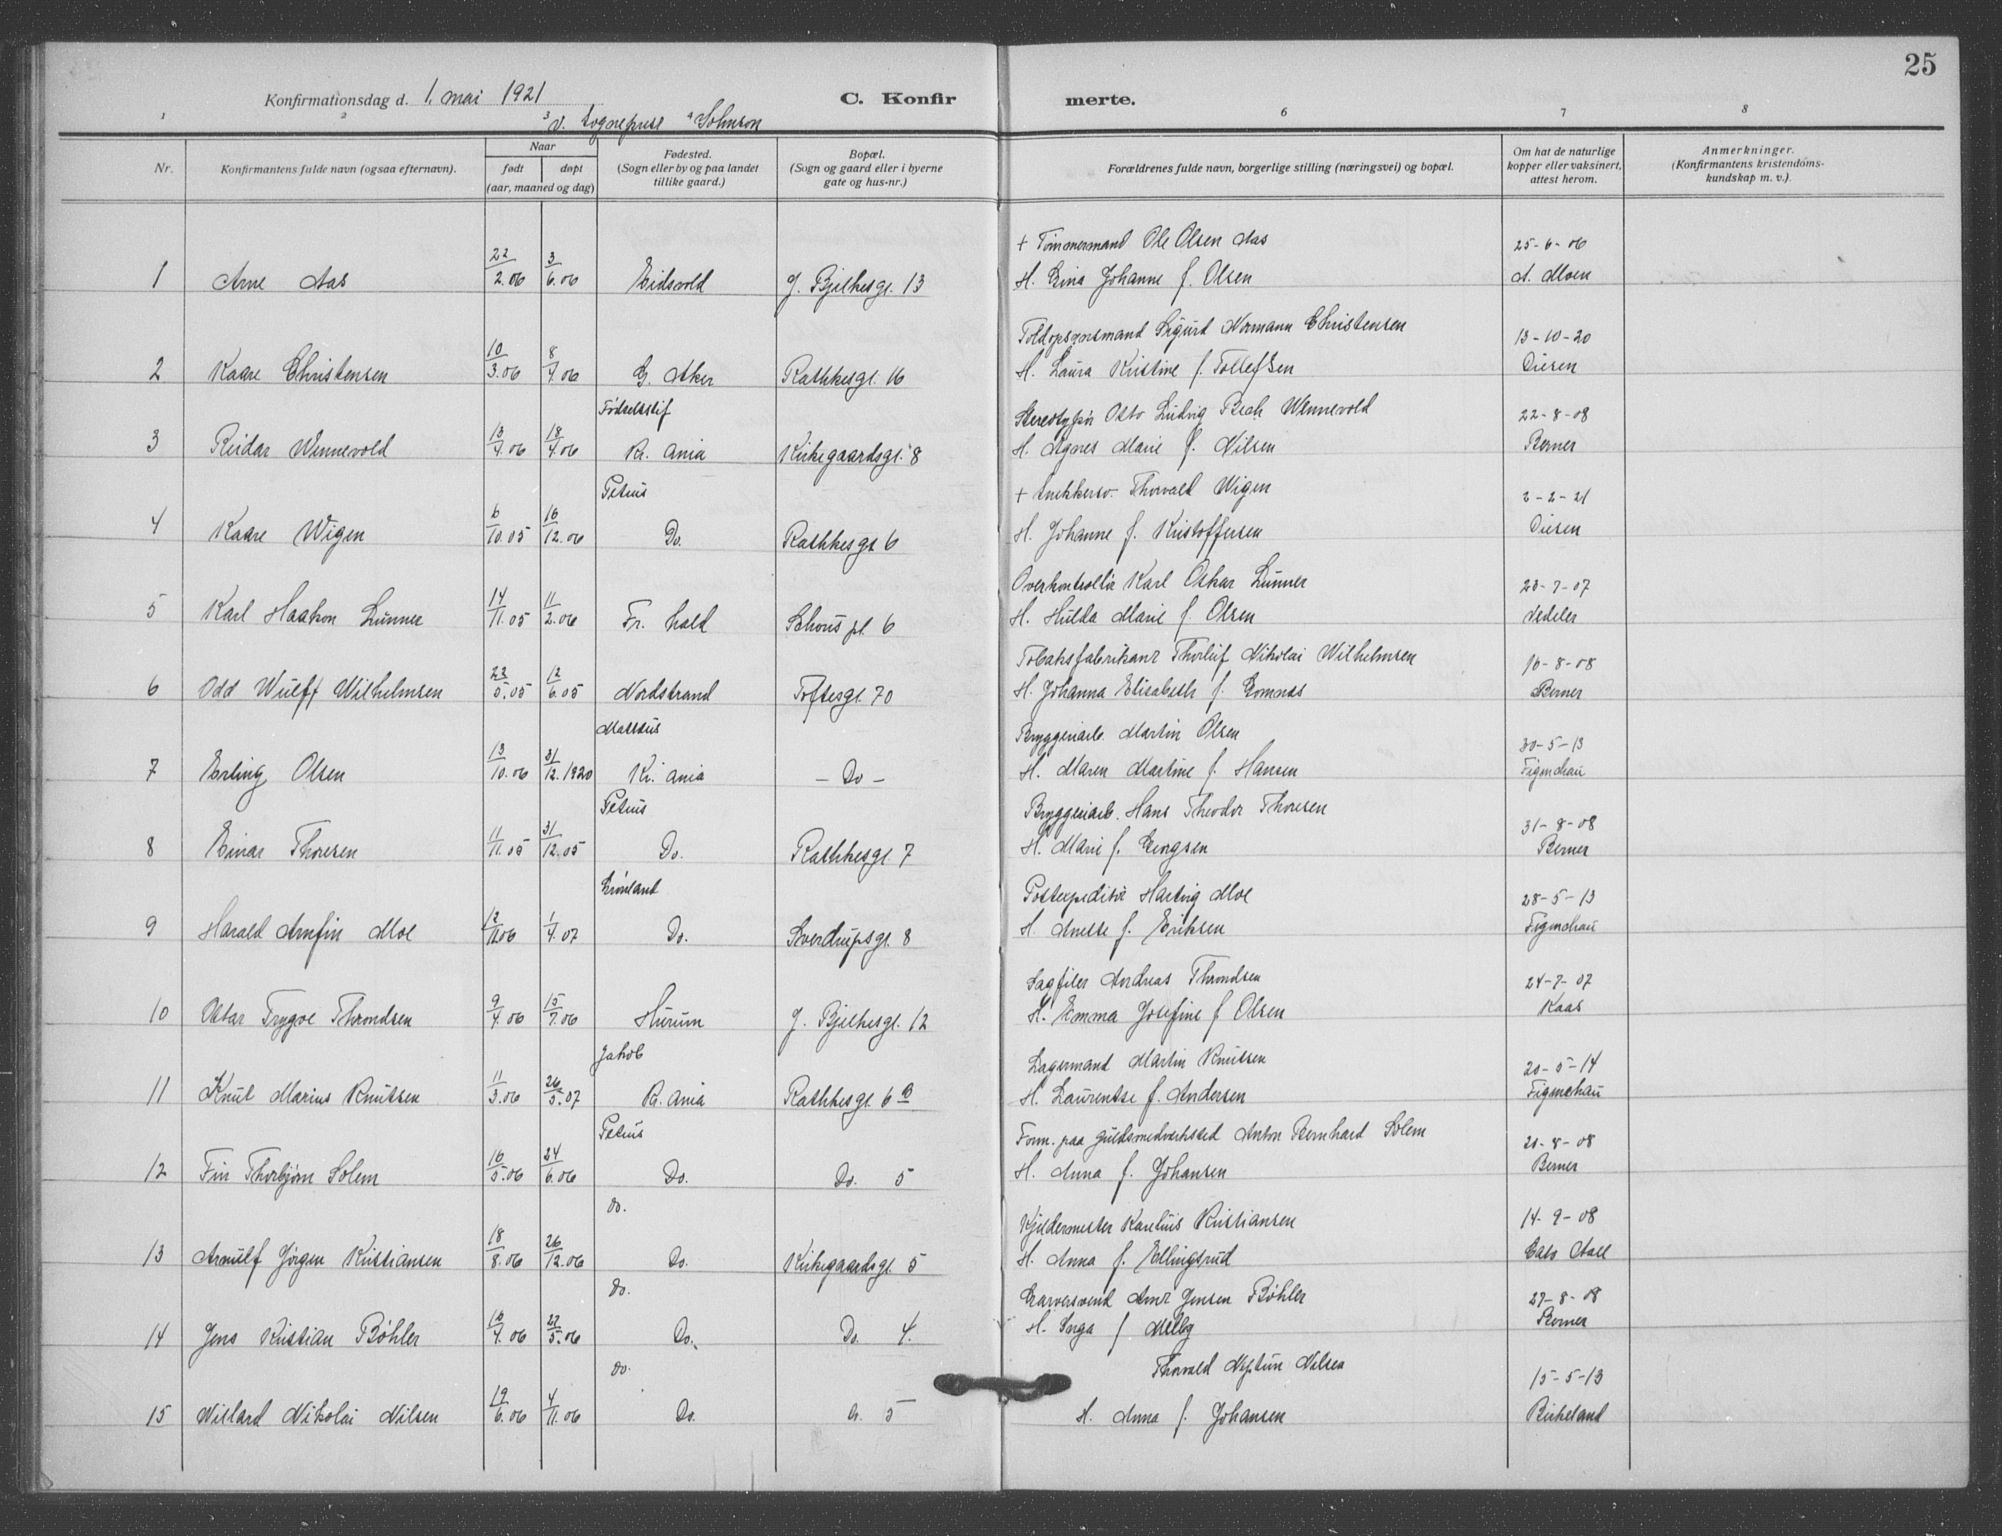 25
Konfirmationsdag d. 1. mai 1921
C. Konfirmerte.
v. sogneprest Johnson
1 2 3 4 6 7 8
Nr.
Konfirmantens fulde navn (ogsaa efternavn).
Naar
født døpt
(aar, maaned og dag)
Fødested.
(Sogn eller by og paa landet
tillike gaard.)
Bopæl.
(Sogn og gaard eller i byerne
gate og hus-nr.)
Forældrenes fulde navn, borgerlige stilling (næringsvei) og bopæl.
Om hat de naturlige
kopper eller vaksinert,
attest herom.
Anmerkninger.
(Konfirmantens kristendoms-
kundskap m. v.)
+ Tømmermand Ole Olsen Aas 25-6-06
1 Arne Aas 22/2.06 3/6.06 Eidsvold J. Bjelkesgt. 13 H. Gina Johanne f. Olsen A. Moen
Toldopsynsmand Sigurd Normann Christensen 13-10-20
2 Kaare Christensen 10/3.06 8/7.06 G. Aker Rathkesgt. 16 H. Laura Kristine f. Tollefsen Diesen
Fødselsstif Stereotypør Otto Ludvig Bech Wennevold 22-8-08
3 Reidar Wennevold 13/4.06 18/4.06 Kr. ania Kirkegaardsgt. 8 H. Agnes Marie f. Nilsen Berner
Petrus + Snekkersv. Thorvald Wigen 2-2-21
4 Kaare Wigen 6/10.05 16/12.06 Do. Rathkesgt 6 H. Johanne f. Kristoffersen Diesen
Overkontrollør Karl Oskar Lunner 23-7-07
5 Karl Haakon Lunner 14/11.05 11/2.06 Fr. hald Schous pl. 6 H. Hulda Marie f. Olsen Vedeler
Tobaksfabrikant Thorleif Nikolai Wilhelmsen 10-8-08
6 Odd Wulff Wilhelmsen 22/5.05 12/6.05 Nordstrand Toftesgt. 70 H. Johanna Elisabeth f. Berner
Matteus Bryggeriarb. Martin Olsen 30-5-13
7 Erling Olsen 13/10.06 31/12.1920 Kr. ania - Do - H. Maren Martine f. Hansen Figenschau
Petrus Bryggeriarb. Hans Theodor Thoresen 31-8-08
8 Einar Thoresen 11/11.05 31/12.05 Do. Rathkesgt. 7 H. Marie f. Georgsen Berner
Grønland Postexpeditør Hartvig Moe 28-5-13
9 Harald Arnfin Moe 12/12.06 1/4.07 Do. Sverdrupsgt. 8 H. Anette f. Eriksen Figenschau
Sagfiler Andreas Throndsen 24-7-07
10 Ottar Trygve Throndsen 9/4.06 15/7.06 Hurum J. Bjelkesgt. 12 H. Emma Josefine f. Olsen Kaas
Jakob Lagermand Martin Knutsen 20-5-14
11 Knut Marius Knutsen 11/3.06 26/5.07 Kr. ania Rathkesgt. 6 b H. Laurentse f. Andersen Figenschau
Petrus Form. paa guldsmedverksted Anton Bernhard Solem 21-8-08
12 Fin Thorbjørn Solem 16/5.06 24/6.06 Do. Do. 5 H. Anna f. Johansen Berner
Do. Kjeldermester Karelius Kristiansen 14-9-08
13 Arnulf Jørgen Kristiansen 18/8.06 26/12.06 Do. Kirkegaardsgt. 5 H. Anna f. Ellingsrud Aall
Do. Garversvend Arnt Jensen Bøhler 27-8-08
14 Jens Kristian Bøhler 16/4.06 27/5.06 Do. Do. 4. H. Inga f. Melby Berner
Do. Thorvald Neptun Nilsen 15-5-13
15 Willard Nikolai Nilsen 19/6.06 4/11.06 Do. 5 H. Anna f. Johansen Birkeland